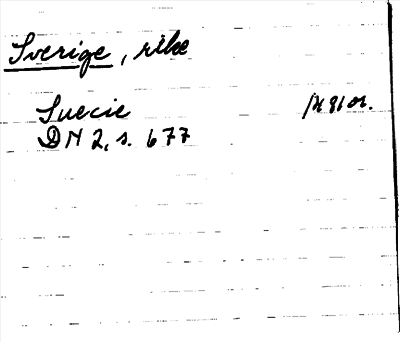 Sverige, rike
Suecie
DN 2, s. 677